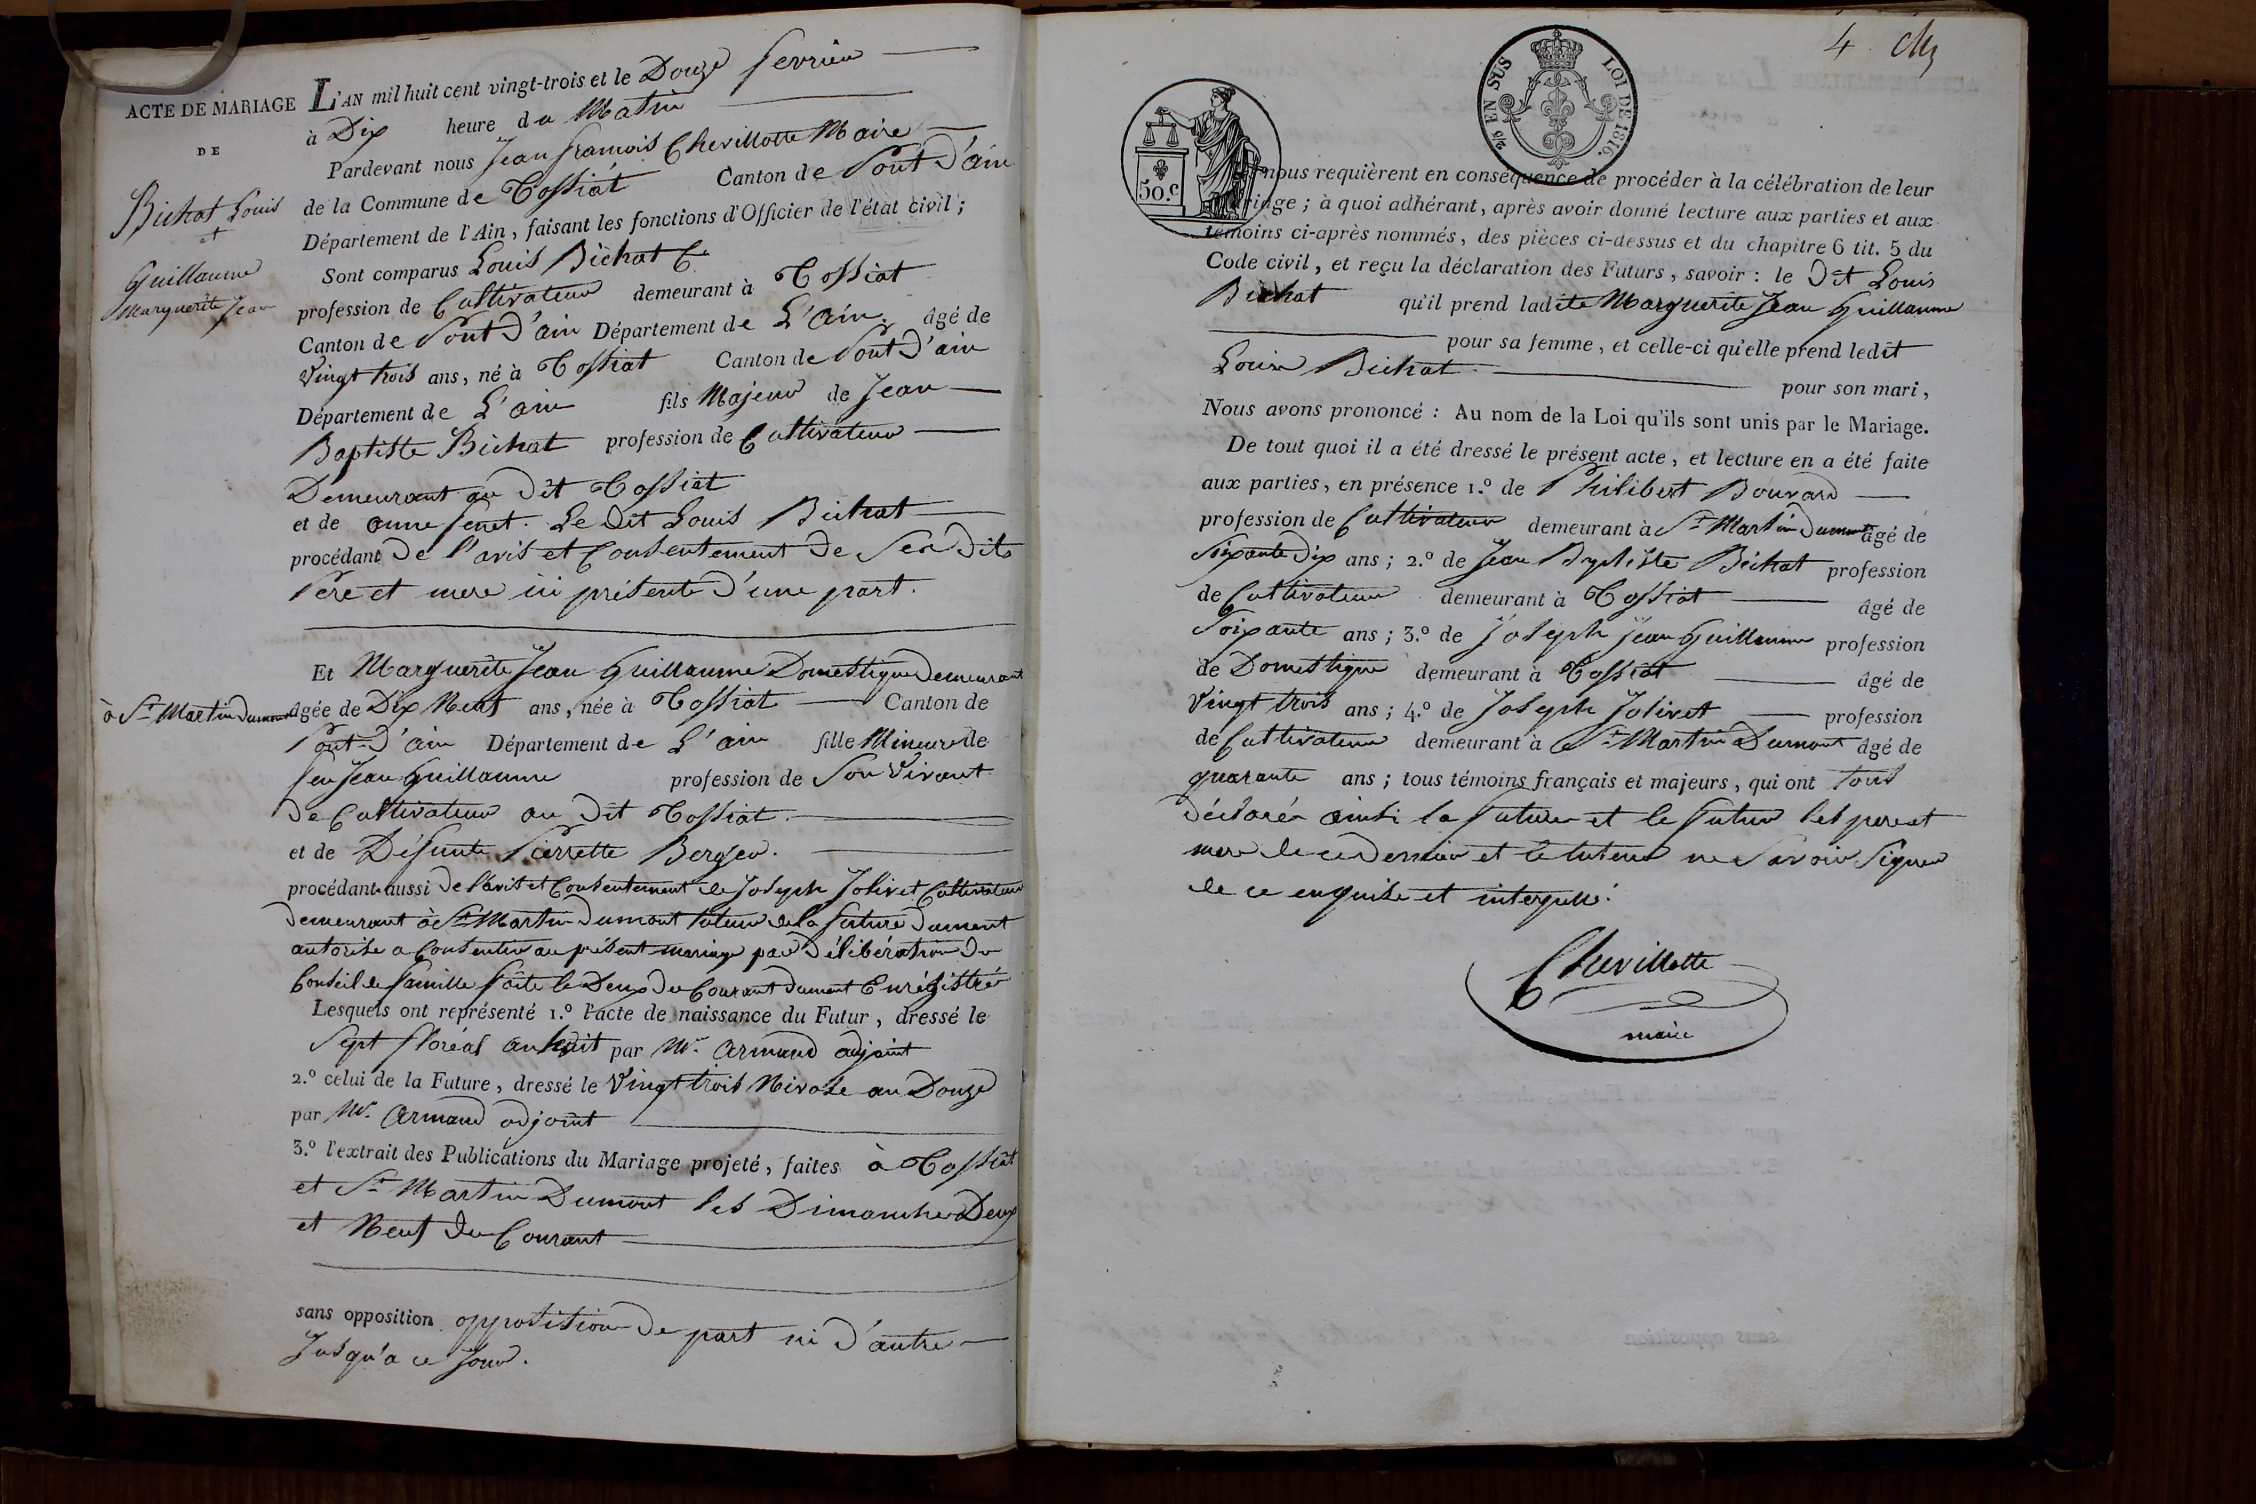 ACTE DE MARIAGE
DE
Bichat Louis
et
Guillaume
Marguerite Jean
L'AN mil huit cent vingt-trois et le Douze fevrier
à Dix heure du Matin
Pardevant nous Jean françois Chevillotte Maire
de la Commune de Tossiat Canton de Pont d'ain
Département de l'Ain, faisant les fonctions d'Officier de l'état civil;
Sont comparus Louis Bichat
profession de Cultivateur demeurant à Tossiat
Canton de Pont d'ain Département de L'ain. âgé de
Vingt trois ans, né à Tossiat Canton de Pont d'ain
Département de L'ain fils Majeur de Jean
Baptiste Bichat profession de Cultivateur
Demeurant au dit Tossiat
et de anne fenet. Le dit Louis Bichat
procédant de l'avis et Consentement de Ses dits
Pere et mere ici présents d'une part.
Et Marguerite Jean Guillaume Domestique demeurant
à St Martin Dumont âgée de Dix Neuf ans, née à Tossiat Canton de
Pont-d'ain Département de L'ain fille Mineure de
feu Jean Guillaume profession de Son Vivant
de Cultivateur au dit Tossiat.
et de Défunte Pierrette Berger.
procédante aussi de l'avis et Consentement de Joseph Jolivet Cultivateur
demeurant à St Martin dumont tuteur de la future dument
autorisé a Consentir au présent mariage par délibération du
Conseil de famille faite le Deux du Courant dument Enrégistré
Lesquels ont représenté 1.º l'acte de naissance du Futur, dressé le
Sept floréal an huit par Mr. Armand adjoint
2.º celui de la Future, dressé le Vingt trois Nivose an Douze
par Mr. Armand adjoint
3.º l'extrait des Publications du Mariage projeté, faites à Tossiat
et St Martin Dumont les Dimanches Deux
et Neuf du Courant
sans opposition opposition de part ni d'autre
Jusqu'a ce Jour.
4
50.c
2/5 EN SUS LOI DE 1816.
nous requièrent en conséquence de procéder à la célébration de leur
mariage; à quoi adhérant, après avoir donné lecture aux parties et aux
témoins ci-après nommés, des pièces ci-dessus et du chapitre 6 tit. 5 du
Code civil, et reçu la déclaration des Futurs, savoir: le dit Louis
Bichat qu'il prend ladite Marguerite Jean Guillaume
pour sa femme, et celle-ci qu'elle prend ledit
Louis Bichat pour son mari,
Nous avons prononcé: Au nom de la Loi qu'ils sont unis par le Mariage.
De tout quoi il a été dressé le présent acte, et lecture en a été faite
aux parties, en présence 1.º de Philibert Bouvard
profession de Cultivateur demeurant à St Martin Dumont âgé de
Soixante Dix ans; 2.º de Jean Baptiste Bichat profession
de Cultivateur demeurant à Tossiat âgé de
Soixante ans; 3.º de Joseph Jean Guillaume profession
de Domestique demeurant à Tossiat âgé de
Vingt trois ans; 4.º de Joseph Jolivet profession
de Cultivateur demeurant à St Martin Dumont âgé de
quarante ans; tous témoins français et majeurs, qui ont tous
déclarés ainsi la future et le futur les pere et
mere de ce dernier et le tuteur ne Savoir Signer
de ce enquise et interpellé.
Chevillotte
maire